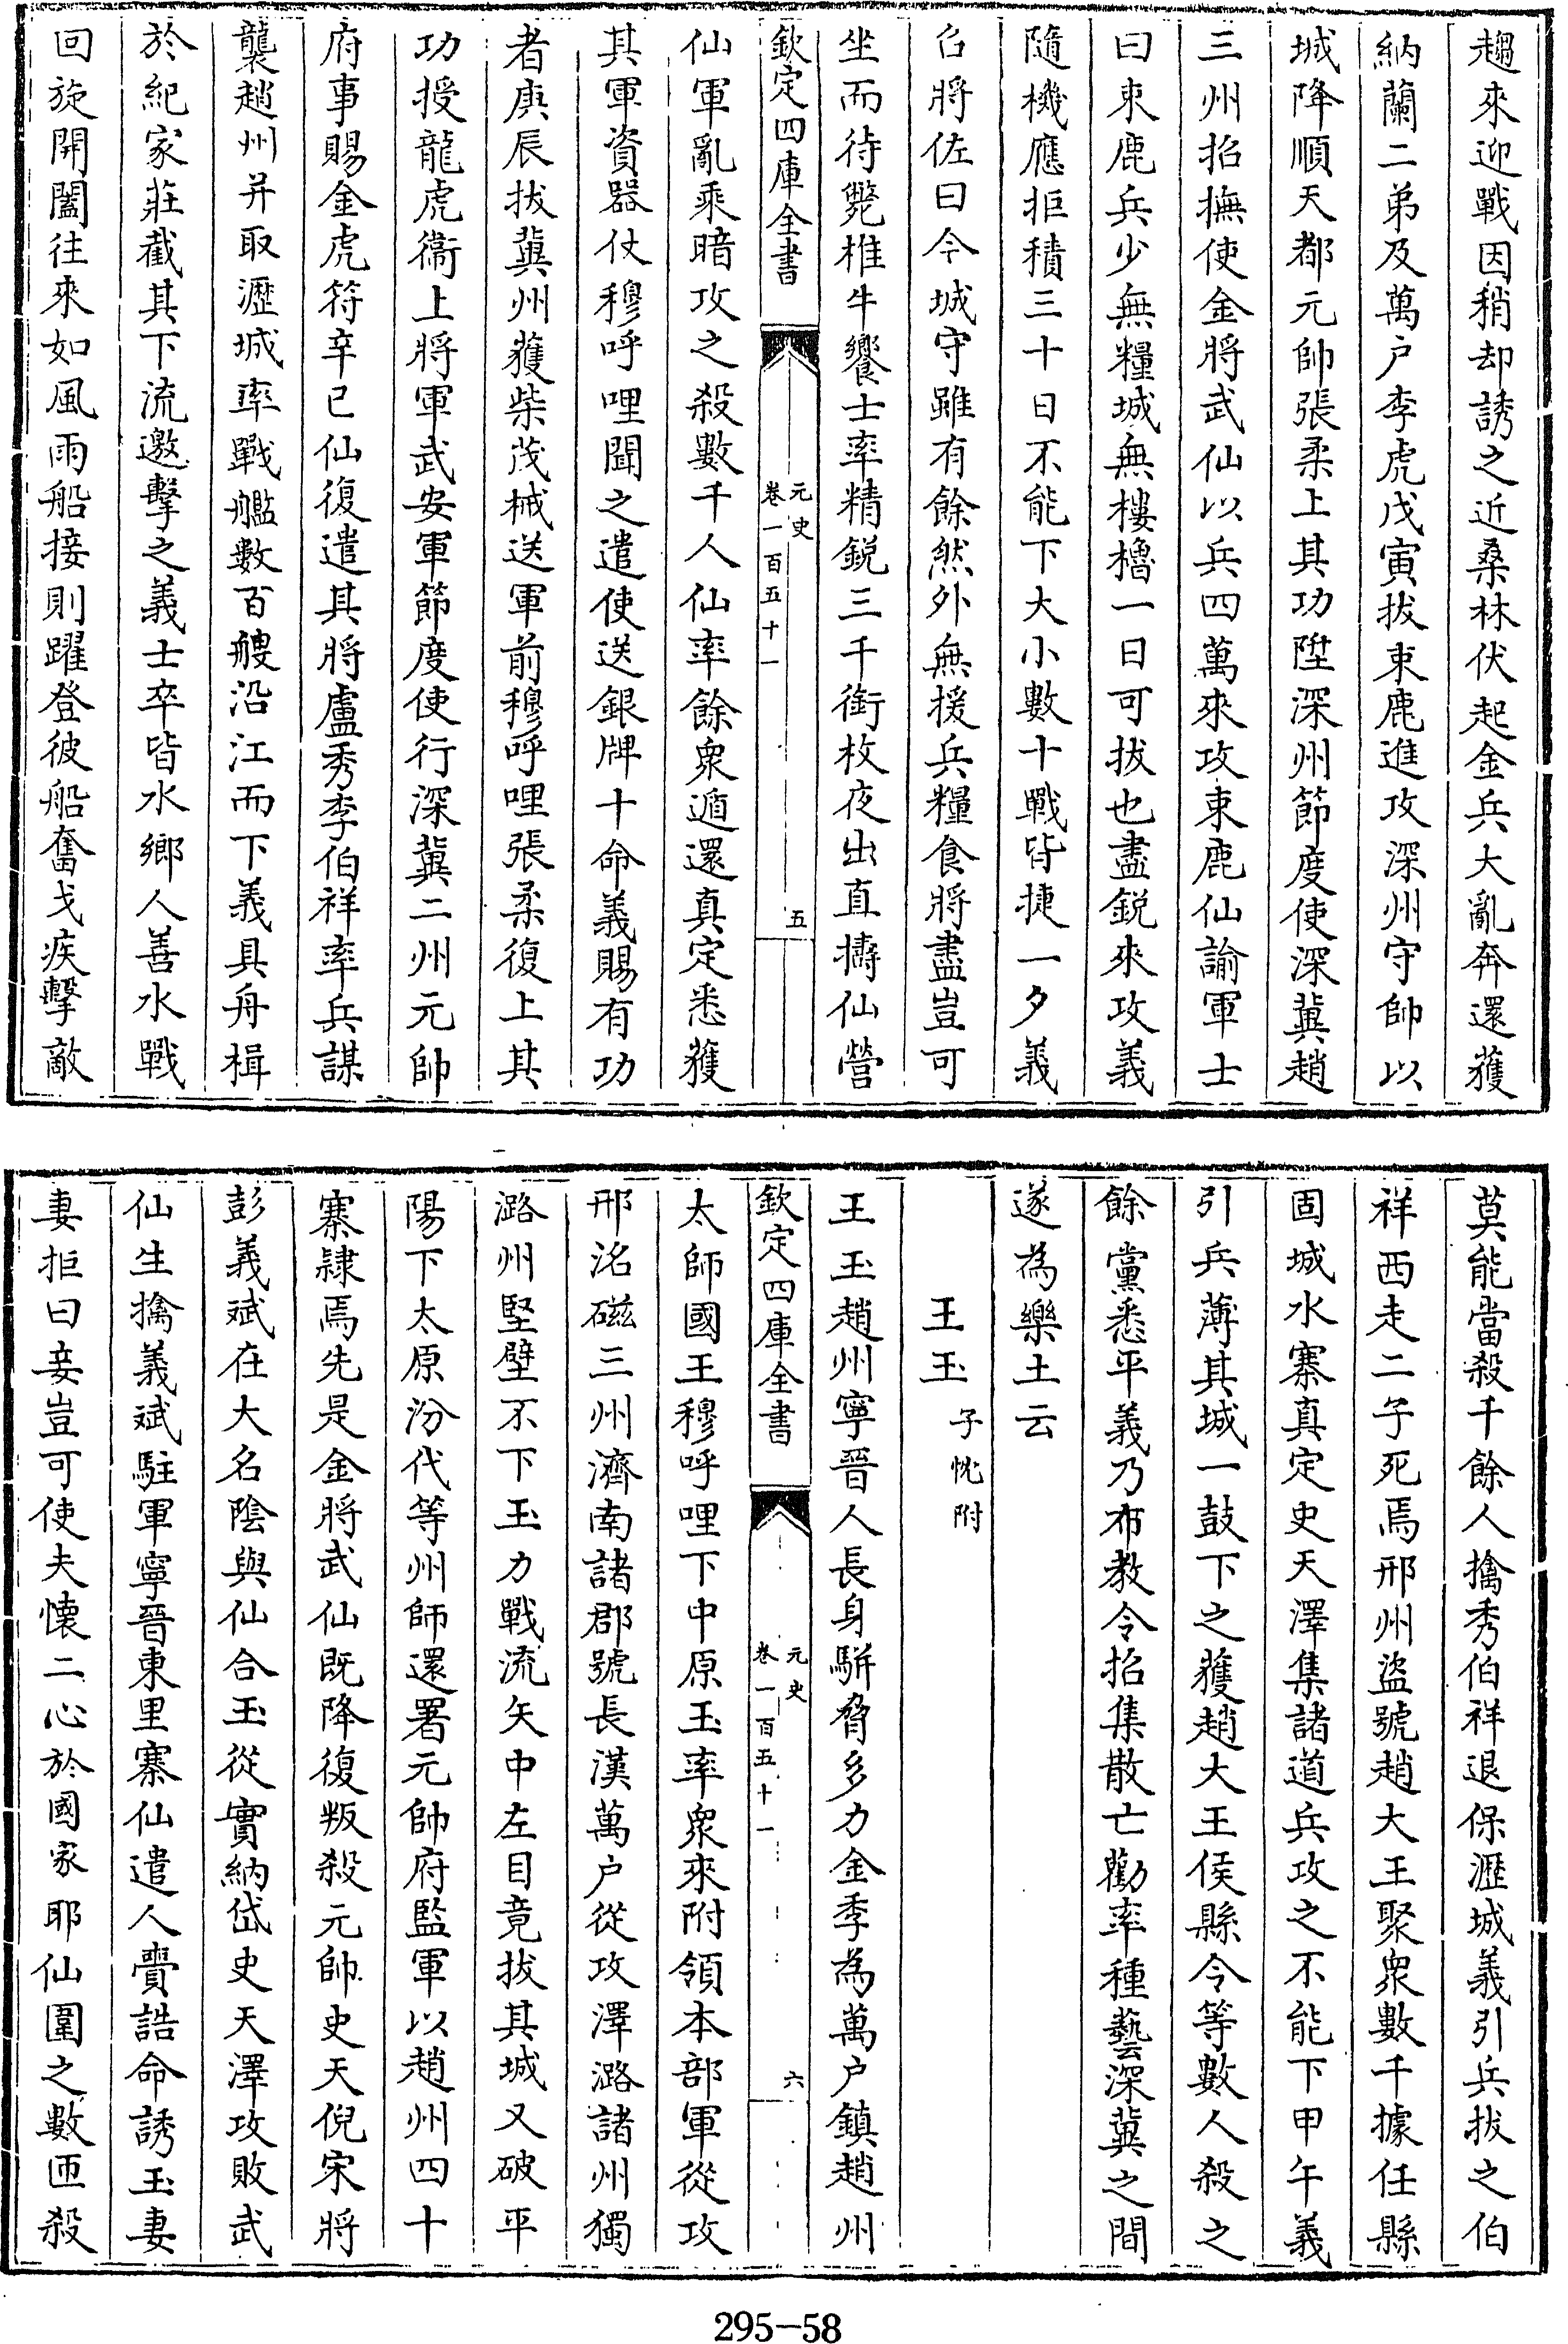 趨來迎戰因稍却誘之近桑林伏起金兵大亂奔還獲
納蘭二弟及萬户李虎戊寅拔束鹿進攻深州守帥以
城降順天都元帥張柔上其功陞深州節度使深冀趙
三州招撫使金將武仙以兵四萬來攻束鹿仙諭軍士
曰束鹿兵少無糧城無樓櫓一日可拔也盡鋭來攻義
隨機應拒積三十日不能下大小數十戰皆捷一夕義
召將佐曰今城守雖有餘然外無援兵糧食將盡豈可
坐而待斃椎牛饗士率精鋭三千銜枚夜出直擣仙營
欽定四庫全書
元史
卷一百五十一
五
仙軍亂乘暗攻之殺數千人仙率餘衆遁還真定悉獲
其軍資器仗穆呼哩聞之遣使送銀牌十命義賜有功
者庚辰拔冀州獲柴茂械送軍前穆呼哩張柔復上其
功授龍虎衞上將軍武安軍節度使行深冀二州元帥
府事賜金虎符辛已仙復遣其將盧秀李伯祥率兵謀
襲趙州并取瀝城率戰艦數百艘沿江而下義具舟楫
於紀家莊截其下流邀擊之義士卒皆水鄉人善水戰
回旋開闔往來如風雨船接則躍登彼船奮戈疾擊敵
莫能當殺千餘人擒秀伯祥退保瀝城義引兵拔之伯
祥西走二子死焉邢州盜號趙大王聚衆數千據任縣
固城水寨真定史天澤集諸道兵攻之不能下甲午義
引兵薄其城一鼓下之獲趙大王侯縣令等數人殺之
餘黨悉平義乃布教令招集散亡勸率種藝深冀之間
遂為樂土云
王玉 子忱附
王玉趙州寧晉人長身駢脅多力金季為萬户鎮趙州
欽定四庫全書
元史
卷一百五十一
六
太師國王穆呼哩下中原玉率衆來附領本部軍從攻
邢洺磁三州濟南諸郡號長漢萬户從攻澤潞諸州獨
潞州堅壁不下玉力戰流矢中左目竟拔其城又破平
陽下太原汾代等州師還署元帥府監軍以趙州四十
寨隸焉先是金將武仙既降復叛殺元帥史天倪宋將
彭義斌在大名陰與仙合玉從實納岱史天澤攻敗武
仙生擒義斌駐軍寧晉東里寨仙遣人賫誥命誘玉妻
妻拒曰妾豈可使夫懷二心於國家耶仙圍之數匝殺
295-58